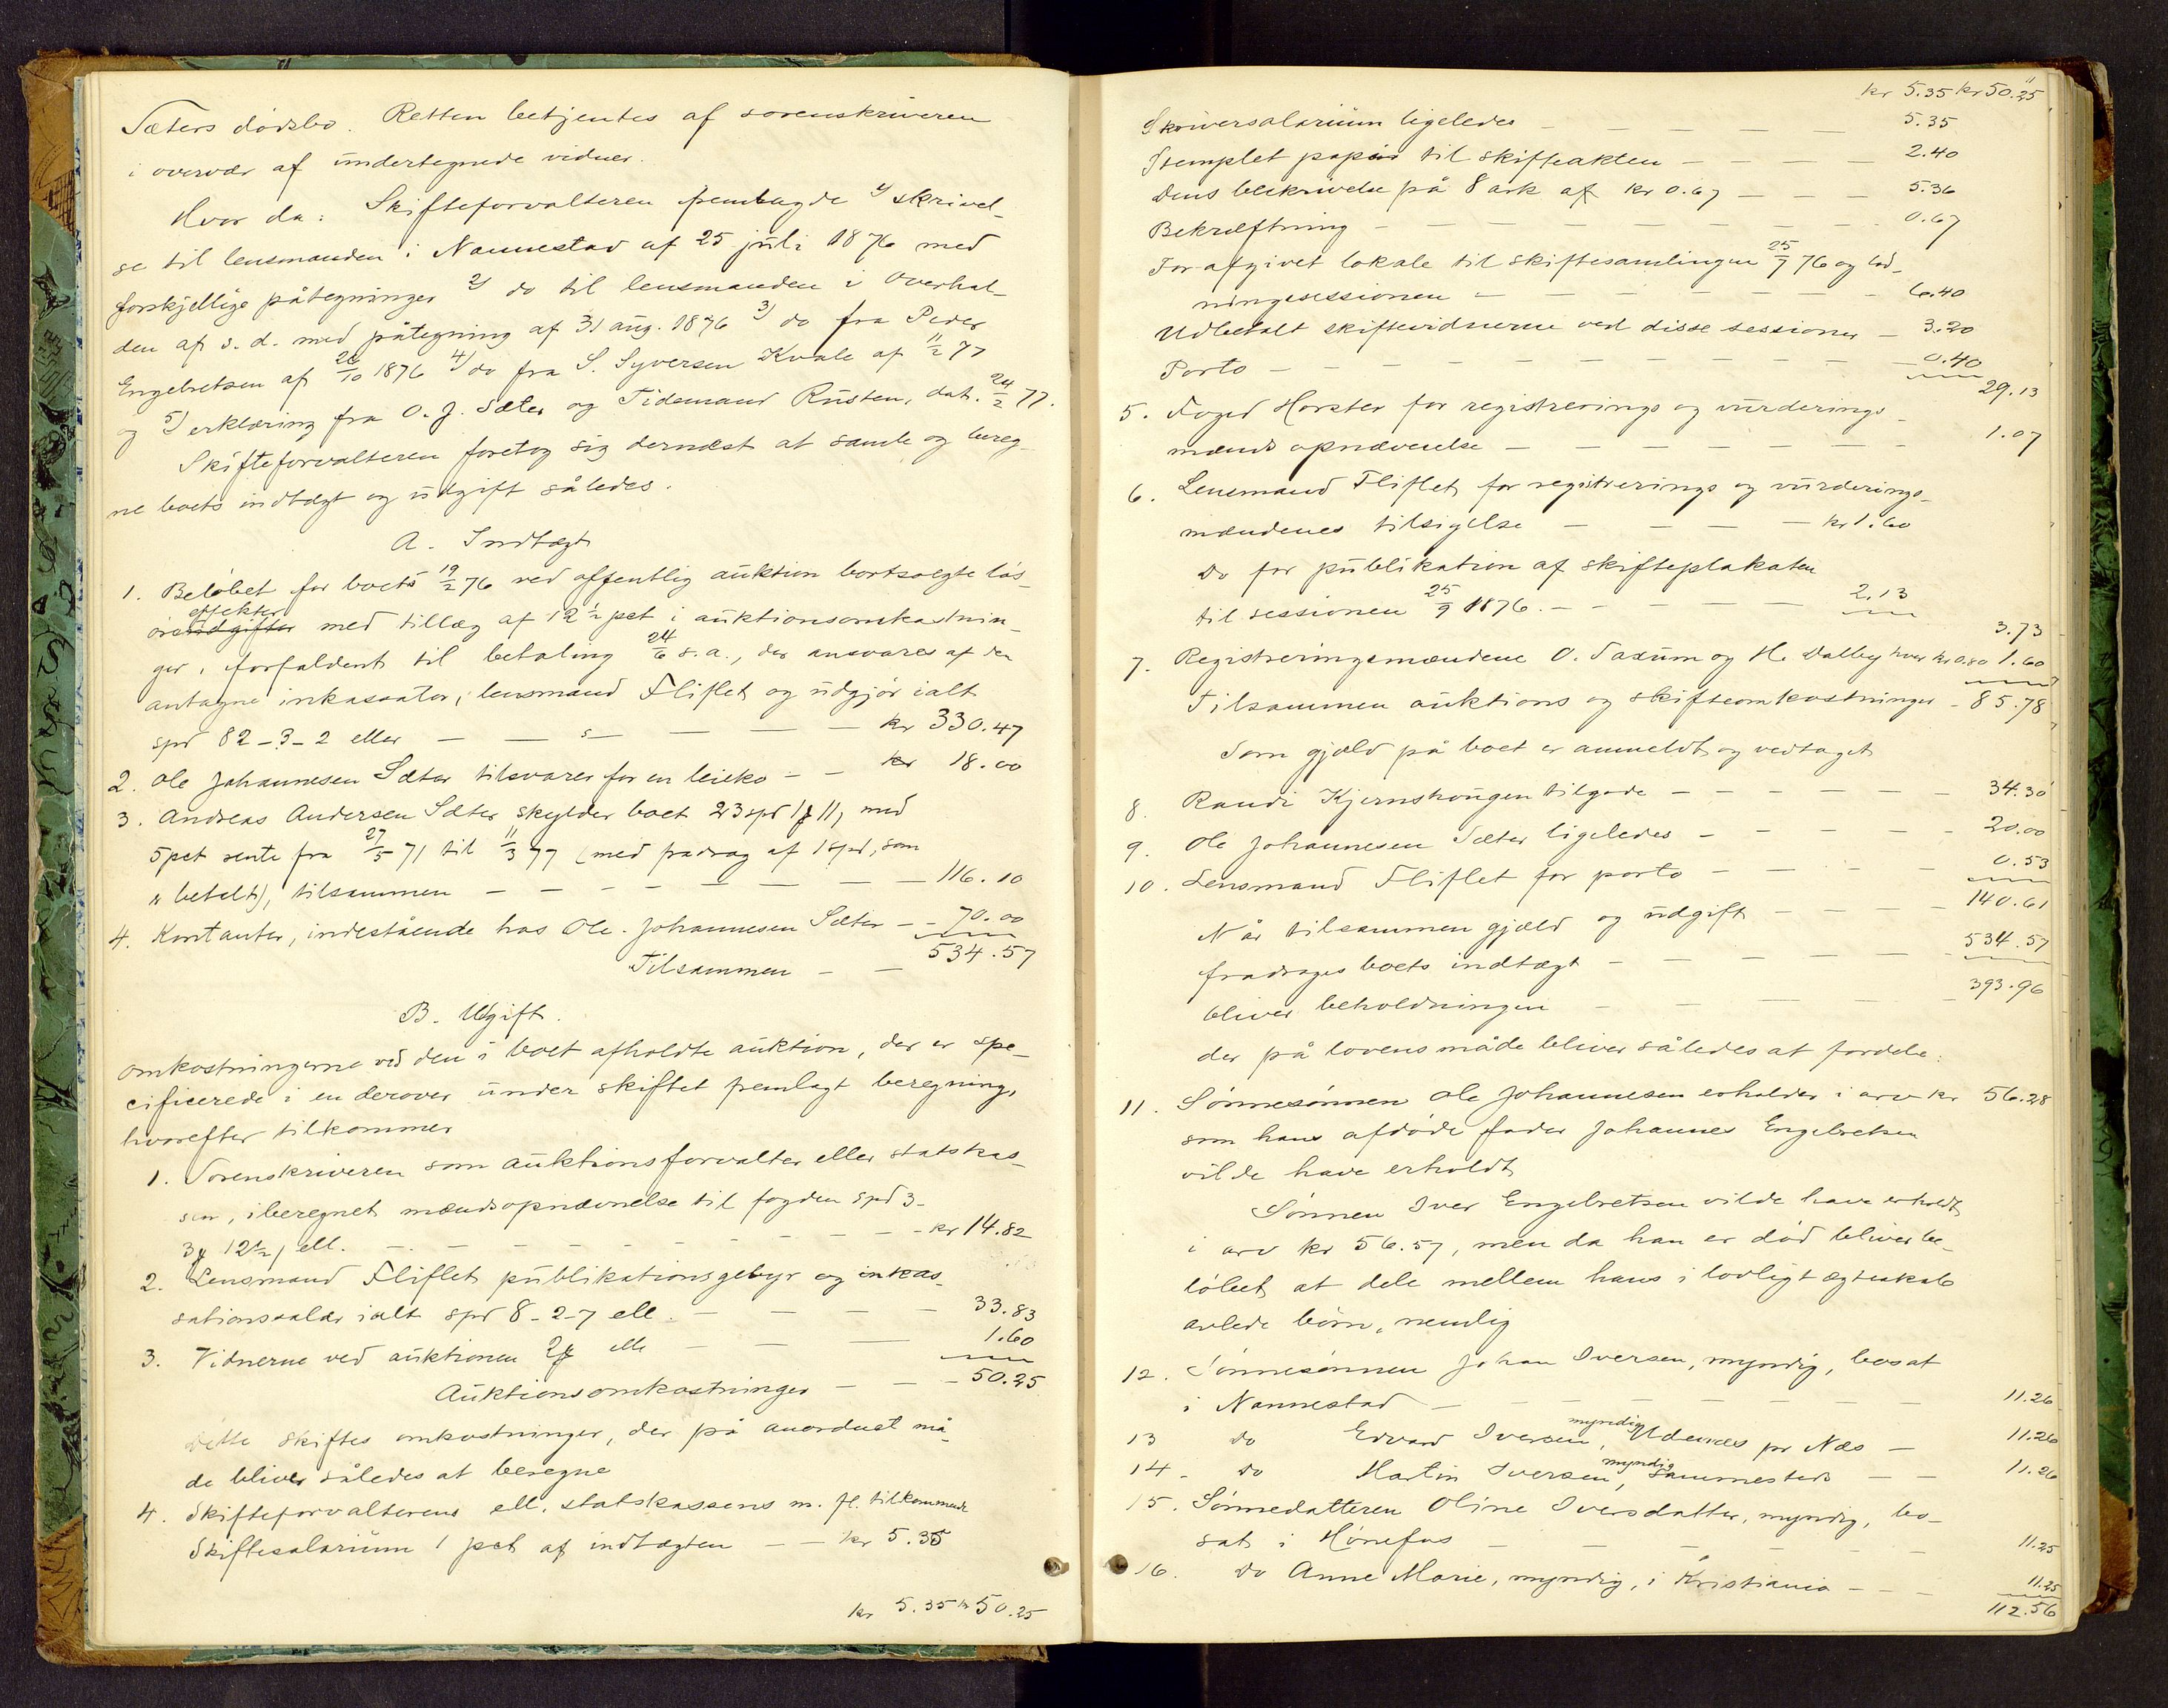 Sæters dødsbo. Retten betjentes af sorenskriveren
i overvær af undertegnede vidner.
Hvor da: Skifteforvalteren fremlagde 1) skrivel-
se til lensmanden i Nannestad af 25 juli 1876 med
forskjellige påtegninger 2) do til lensmanden i Overhal-
den af s. d. med påtegning af 31 aug. 1876 3) do fra Peder
Engebretsen af 26/10 1876 4) do fra S. Syversen Kvale af 11/2 77
og 5) erklæring fra O. J. Sæter og Tidemand Rusten, dat. 24/2 77.
Skifteforvalteren foretog sig dernæst at samle og bereg-
ne boets indtægt og udgift således.
A. Indtægt
1. Beløbet for boets 19/2 76 ved offentlig auktion bortsolgte løs-
øreudgifter effekter med tillæg af 12½ pct i auktionsomkostnin-
ger, forfaldent til betaling 24/6 s. a., der ansvares af den
antagne inkassator, lensmand Fliflet og udgjør ialt
spd 82-3-2 eller — — — — — kr 330.47
2. Ole Johannesen Sæter tilsvarer for en leieko - - kr 18.00
3. Andreas Andersen Sæter skylder boet 23 spd 1 ƒ 11, med
5 pct rente fra 27/5 71 til 11/3 77 (med fradrag af 1 spd, som
er betalt), tilsammen — — — — — — 116.10
4. Kontanter, indestående hos Ole Johannesen Sæter - - 70.00
Tilsammen — — 534.57
B. Udgift.
Omkostningerne ved den i boet afholdte auktion, der er spe-
cificerede i en derover under skiftet fremlagt beregning,
hvorefter tilkommer
1. Sorenskriveren som auktionsforvalter eller statskas-
sen, iberegnet mændsopnævnelse til fogden spd 3-
3 ƒ 12½, ell. — — — — — — kr 14.82
2. Lensmand Fliflet publikationsgebyr og inkas-
sationssalær ialt spd 8-2-7 ell. — — — — 33.83
3. Vidnerne ved auktionen 2 ƒ ell — — — 1.60
Auktionsomkostninger — — - 50.25
Dette skiftes omkostninger, der på anordnet må-
de bliver således at beregne
4. Skifteforvalterens ell. statskassens m. fl. tilkommende
Skiftesalarium 1 pct af indtægten — — kr 5.35
kr 5.35 kr 50.25
kr 5.35 kr 50.25
Skriversalarium ligeledes — — — — — 5.35
Stemplet papir til skifteakten — — — — 2.40
Dens beskrivelse på 8 ark af kr 0.67 — — — 5.36
Bekræftning — — — — — — — 0.67
For afgivet lokale til skiftesamlingen 25/9 76 og lod-
ningssessionen — — — — — — 6.40
Udbetalt skiftevidnerne ved disse sessioner — 3.20
Porto — — — — — — — — 0.40
29.13
5. Foged Horster for registrerings og vurderings-
mænds opnævnelse — — — — — — 1.07
6. Lensmand Fliflet for registrerings og vurderings-
mændenes tilsigelse — — — — kr 1.60
Do for publikation af skifteplakaten
til sessionen 25/9 1876. — — — — 2.13
3.73
7. Registreringsmændene O. Taxum og H. Dalby hver kr 0.80 1.60
Tilsammen auktions og skifteomkostninger - 85.78
Som gjæld på boet er anmeldt og vedtaget
8. Randi Kjernshougen tilgode — — — — — — 34.30
9. Ole Johannesen Sæter ligeledes — — — — — 20.00
10. Lensmand Fliflet for porto — — — — — 0.53
Når tilsammen gjæld og udgift — — — — 140.61
fradrages boets indtægt — — — — — 534.57
bliver beholdningen — — — — 393.96
der på lovens måde bliver således at fordele:
11. Sønnesønnen Ole Johannesen erholder i arv kr 56.28
som hans afdøde fader Johannes Engebretsen
vilde have erholdt
Sønnen Iver Engebretsen vilde have erholdt
i arv kr 56.57, men da han er død bliver be-
løbet at dele mellem hans i lovligt ægteskab
avlede børn, nemlig
12. Sønnesønnen Johan Iversen, myndig, bosat
i Nannestad — — — — — — — 11.26
13 do Edvard Iversen, myndig, Udenæs pr Næs — 11.26
14. do Martin Iversen, myndig, sammesteds — — 11.26
15. Sønnedatteren Oline Iversdatter, myndig, bo-
sat i Hønefos — — — — — — 11.25
16. do Anne Marie, myndig, i Kristiania — — — 11.25
112.56